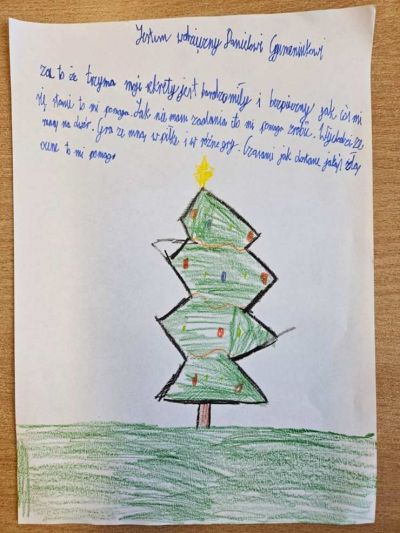 Jestem wdzięczny Danielowi
za to że trzyma moje sekrety jest bardzo miły i bezpieczny jak coś mi
się stanie to mi pomaga. Jak nie mam zadania to mi pomaga zrobić. Wychodzi ze
mną na dwór. Gra ze mną w piłkę i w różne gry. Czasami jak dostanę jakąś złą
ocenę to mi pomaga